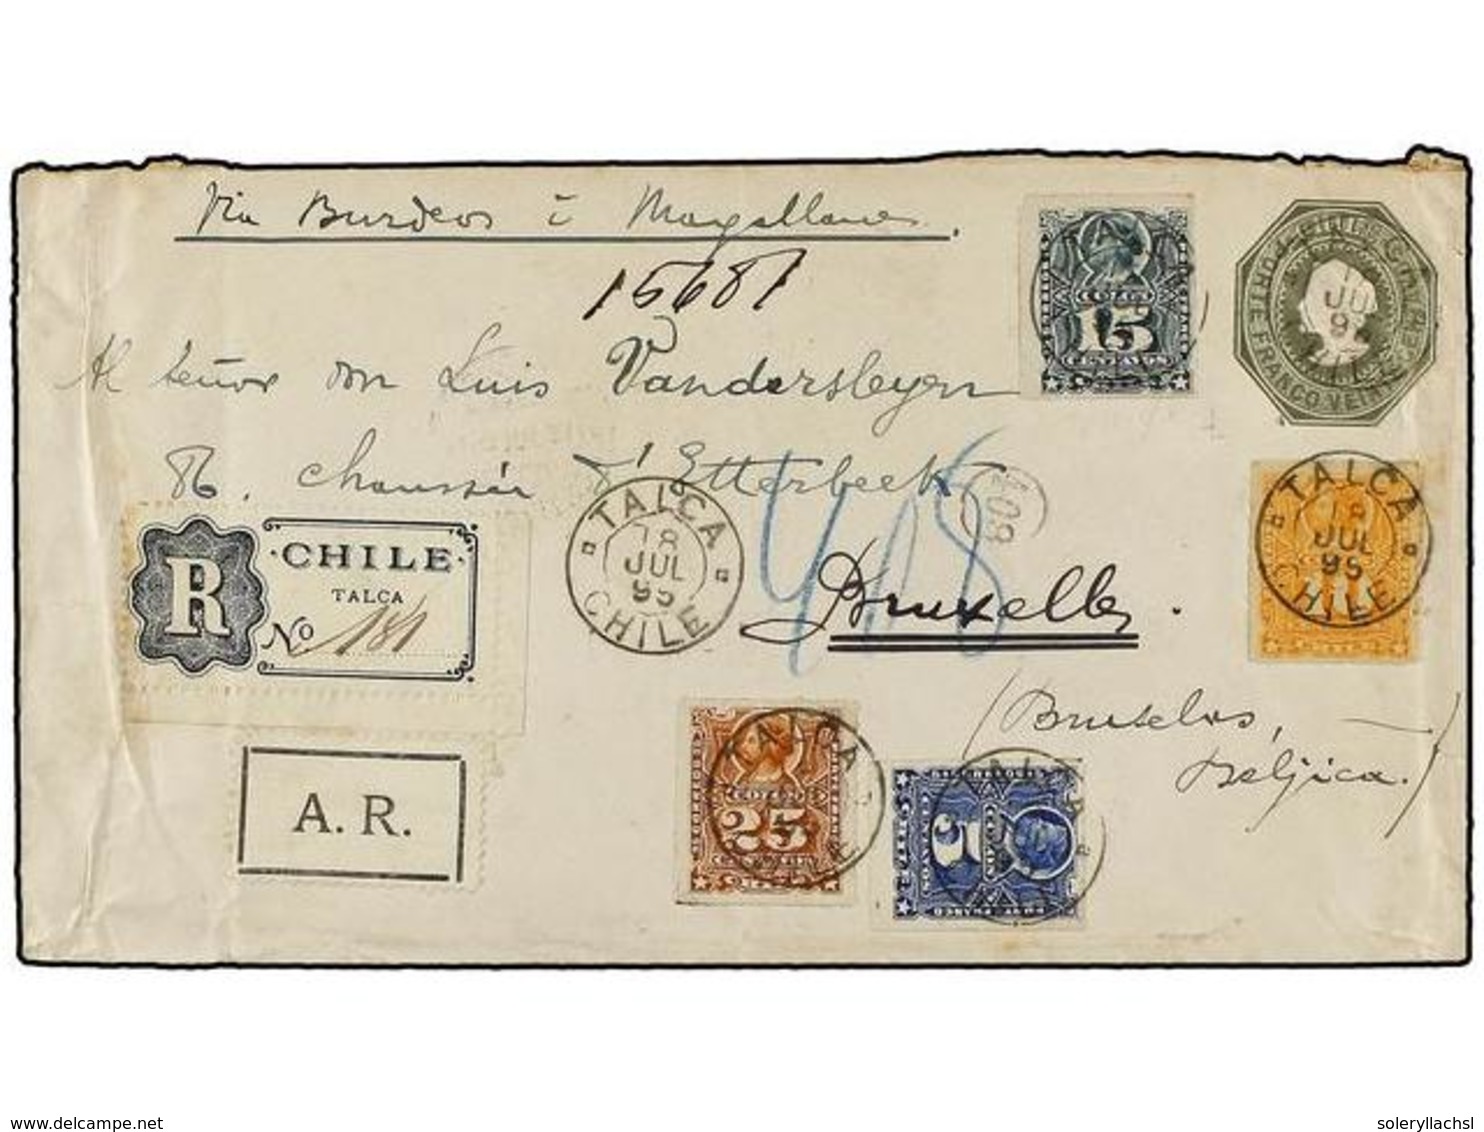 Via Burdeos ó Magallanes.
15681
Al señor don Luis Vandersleyen
86. Chaussée d'Etterbeek
408
Bruxelles.
(Bruselas,
Béljica.)
R
CHILE
TALCA
No 181
A. R.
TALCA
18
JUL
95
CHILE
COLON
15
CENTAVOS
PORTE FRANCO VEINTE
JUL
TALCA
18
JUL
95
CHILE
TALCA
25
TALCA
5
delcampe.net
soleryllachsl